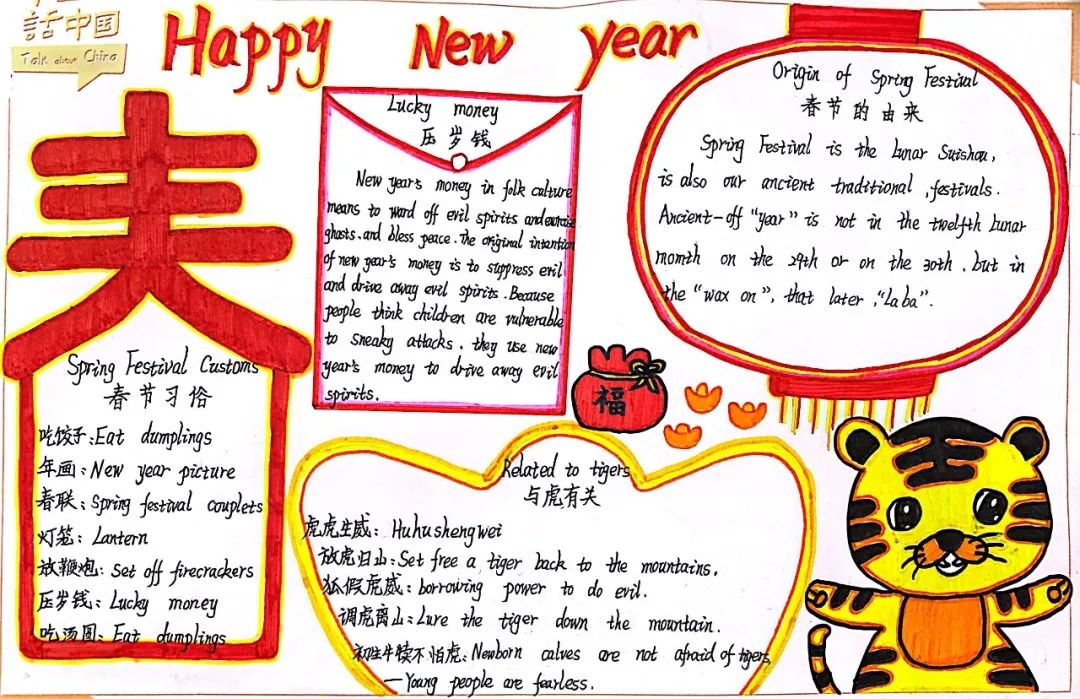 話中国
Talk about China
Happy New year
Spring Festival Customs
春节习俗
吃饺子:Eat dumplings
年画:New year picture
春联:Spring festival couplets
灯笼:Lantern
放鞭炮:Set off firecrackers
压岁钱:Lucky money
吃汤圆:Eat dumplings
Lucky money
压岁钱
New year's money in folk culture
means to ward off evil spirits and exorcise
ghosts. and bless peace. The original intention
of new year's money is to suppress evil
and drive away evil spirits. Because
people think children are vulnerable
to sneaky attacks. they use new
year's money to drive away evil
spirits.
Origin of Spring Festival
春节的由来
Spring Festival is the Lunar Suishou,
is also our ancient traditional festivals.
Ancient-off "year" is not in the twelfth lunar
momth on the 29th or on the 30th. but in
the "wax on", that later, "Laba".
福
Related to tigers
与虎有关
虎虎生威: Huhushengwei
放虎归山:Set free a tiger back to the mountains.
狐假虎威: borrowing power to do evil.
调虎离山:Lure the tiger down the mountain.
初生牛犊不怕虎:Newborn calves are not afraid of tigers
—Young people are fearless.